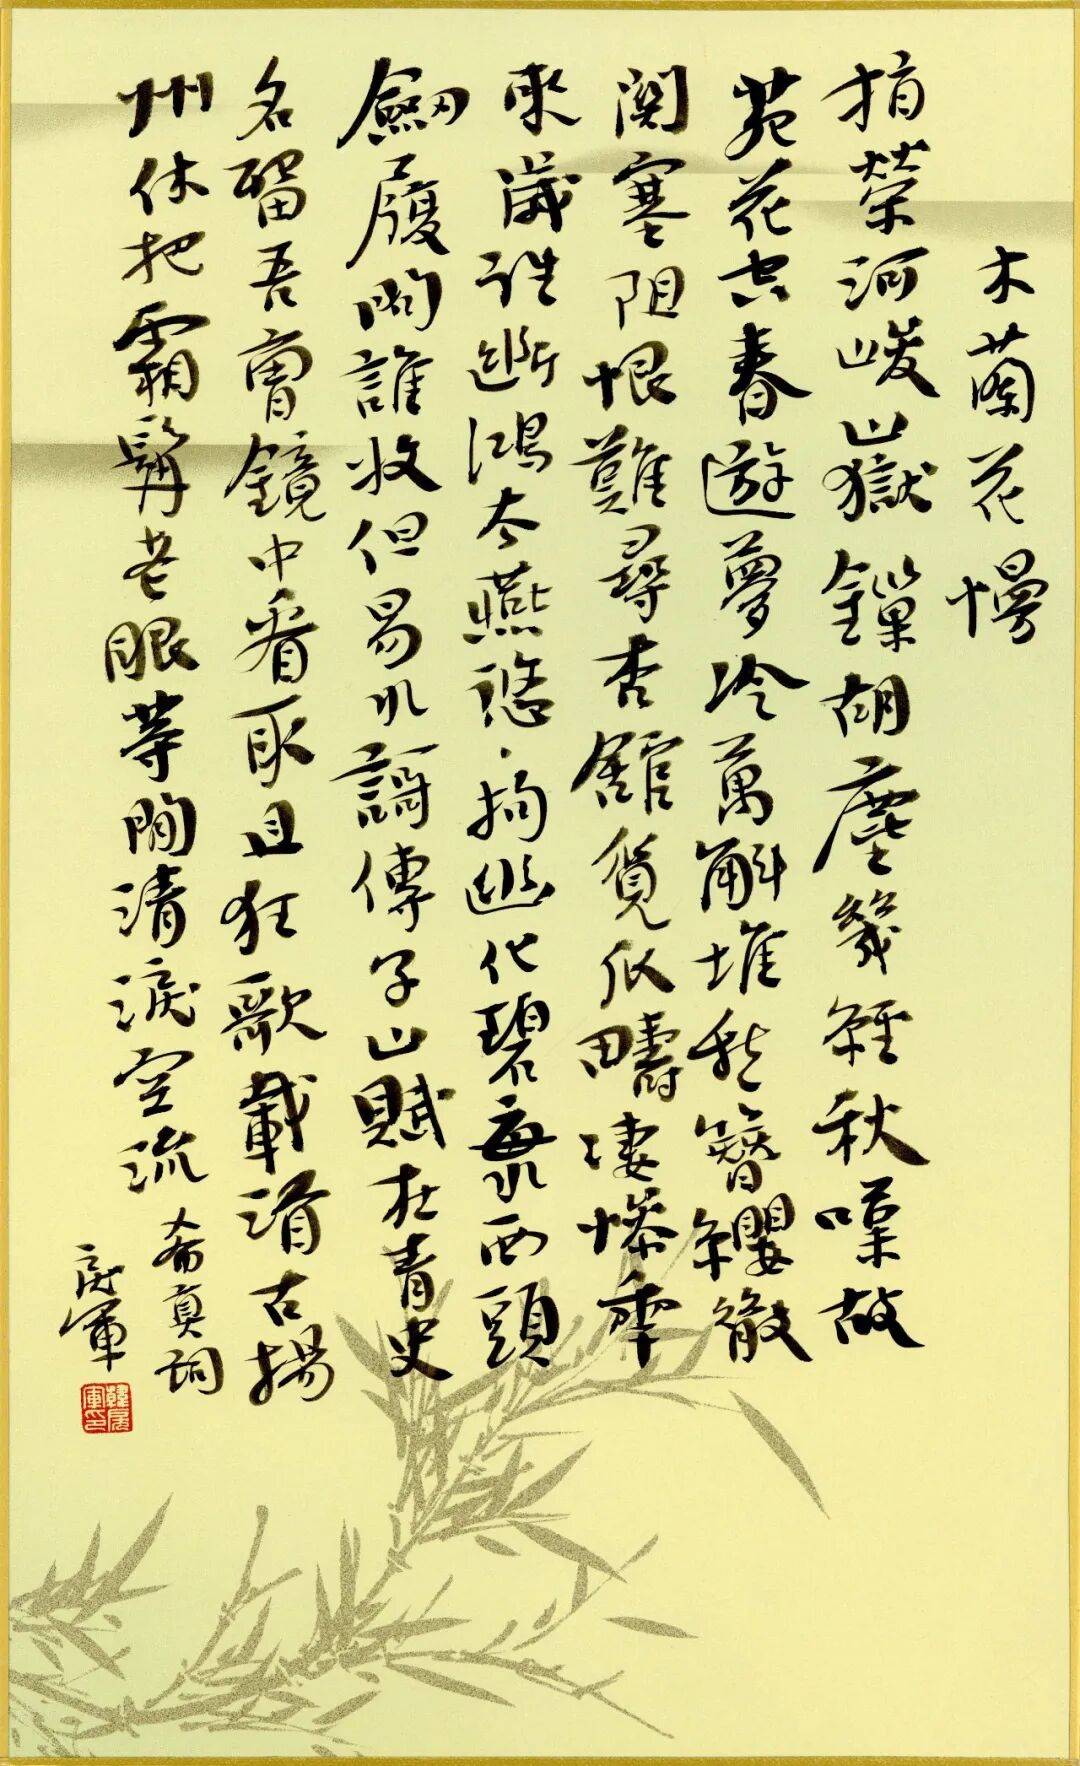 木蘭花慢
指榮河峻嶽鎖胡塵幾經秋嘆故
苑花空春遊夢冷萬斛堆愁簪纓散
關塞阻恨難尋杏館覓瓜疇淒慘年
來歲往斷鴻去燕悠悠拘幽化碧海西頭
劍履問誰收但易水謌傳子山賦在青史
名留吾曹鏡中看取且狂歌載酒古揚
州休把霜髯老眼等閒清淚空流 希真詞
房軍